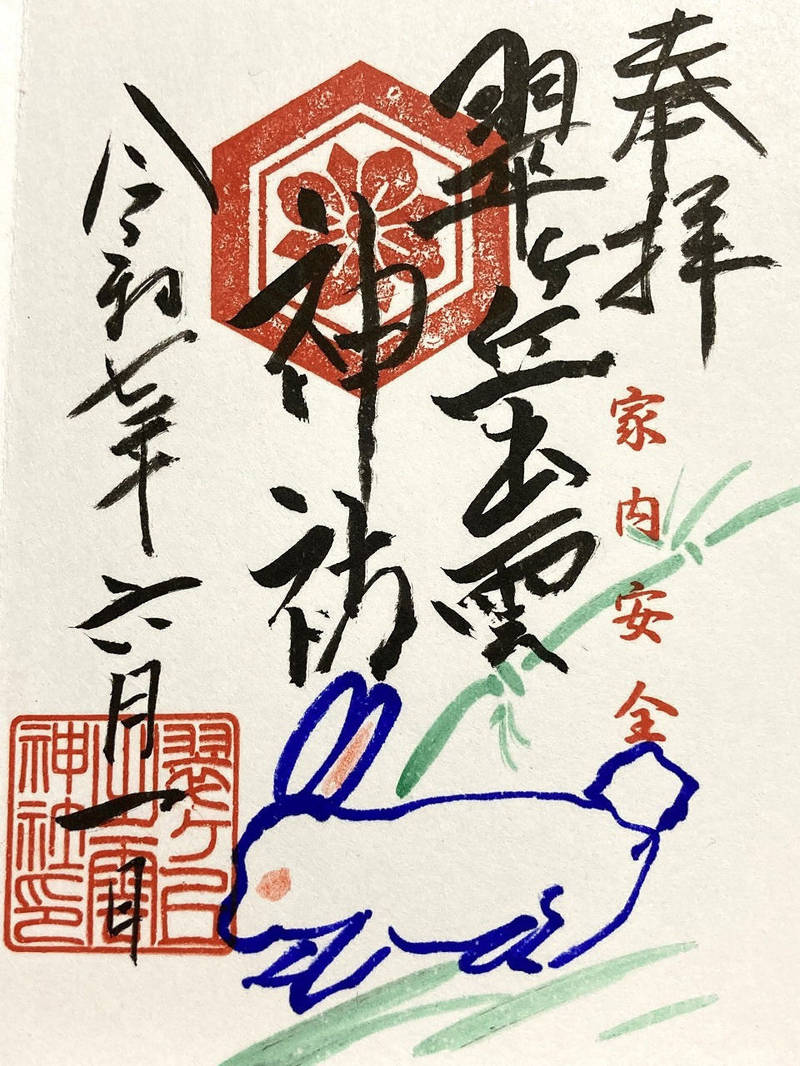 奉拝
家内安全
翠ヶ丘出雲
神
令和七年六月一日
翠ヶ丘
出雲
神社印